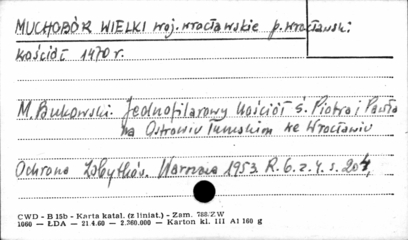 MUCHOBÓR WIELKI woj. wrocławskie p. wrocławski
kościół 1470 r.
M. Bukowski. Jednofilarowy kościół ś. Piotra i Pawła
na Ostrowiu Tumskim we Wrocławiu
Ochrona Zabytków. Warszawa 1953. R. 6. z. 4. s. 204,
CWD - B 15b - Karta katal. (z liniat.) - Zam. 788/ZW
1060 — ŁDA — 21.4.60 — 2.260.000 — Karton kl. III A1 160 g